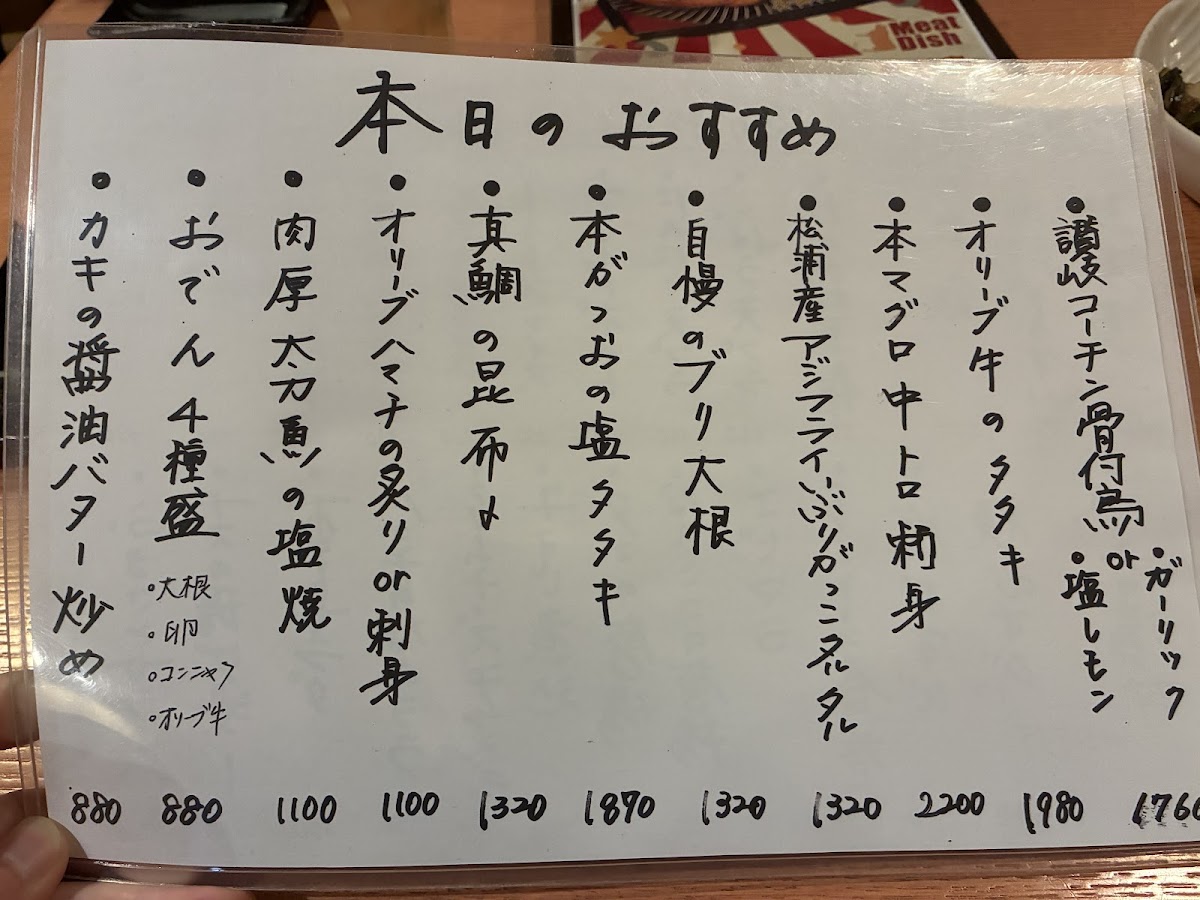 Meat
Dish
本日のおすすめ
・讃岐コーチン骨付鳥
・ガーリック
or
・塩レモン
1760
・オリーブ牛のタタキ
1980
・本マグロ中トロ刺身
2200
・松浦産アジフライ〜いぶりがっこタルタル
1320
・自慢のブリ大根
1320
・本がつおの塩タタキ
1870
・真鯛の昆布〆
1320
・オリーブハマチの炙りor刺身
1100
・肉厚太刀魚の塩焼
1100
・おでん4種盛
・大根
・卵
・コンニャク
・オリーブ牛
880
・カキの醤油バター炒め
880